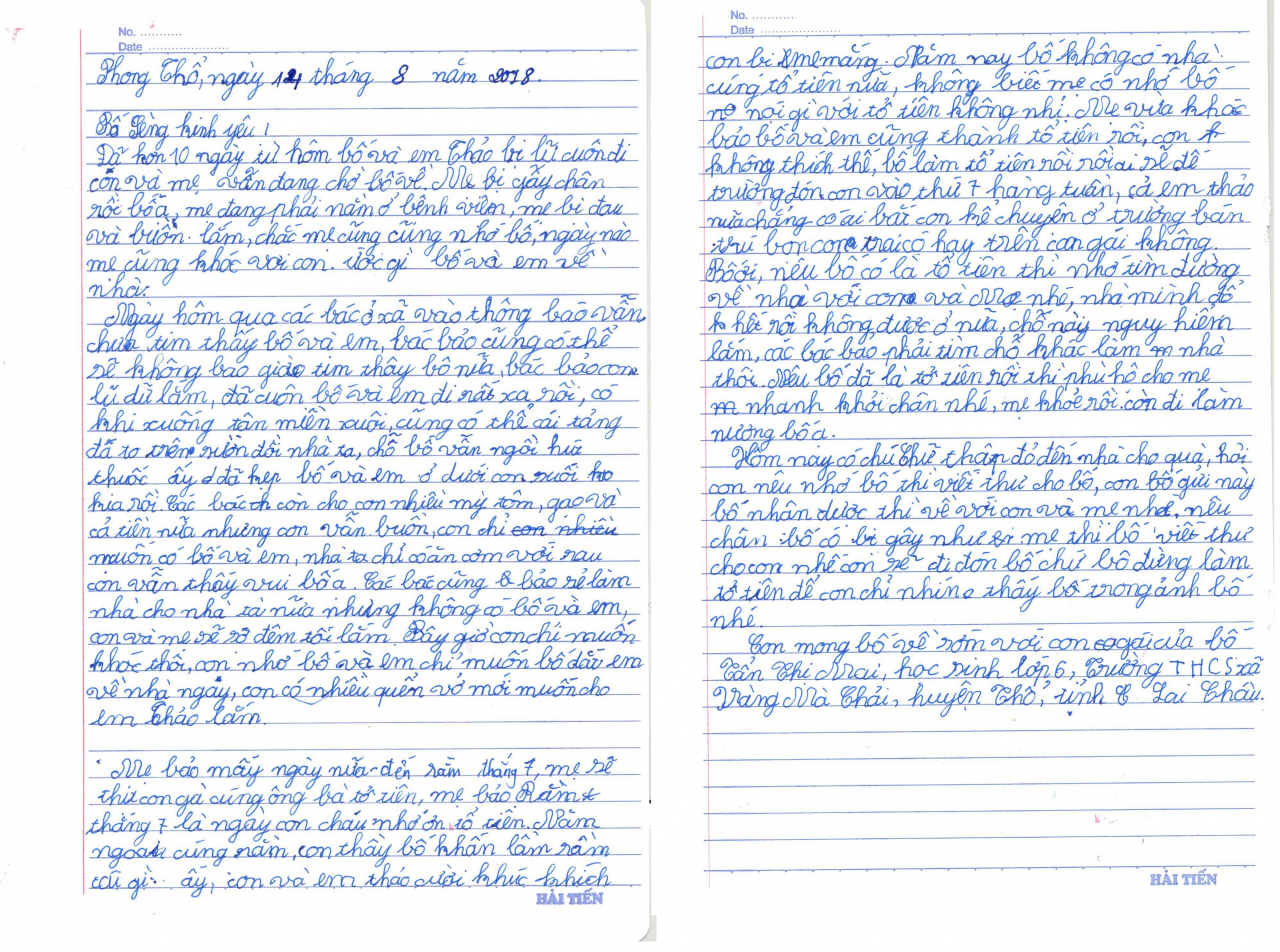 No. ...........
Date ......................
Phong Thổ, ngày 14 tháng 8 năm 2018.
Bố Pèng kính yêu!
Đã hơn 10 ngày từ hôm bố và em Thảo bị lũ cuốn đi
con và mẹ vẫn đang chờ bố về. Mẹ bị gẫy chân
rồi bố ạ, mẹ đang phải nằm ở bệnh viện, mẹ bị đau
và buồn lắm, chắc mẹ cũng cũng nhớ bố, ngày nào
mẹ cũng khóc với con. Ước gì bố và em về
nhà.
Ngày hôm qua các bác ở xã vào thông báo vẫn
chưa tìm thấy bố và em, bác bảo cũng có thể
sẽ không bao giờ tìm thấy bố nữa, bác bảo con
lũ dữ lắm, đã cuốn bố và em đi rất xa rồi, có
khi xuống tận miền xuôi, cũng có thể cái tảng
đã to trên sườn đồi nhà ta, chỗ bố vẫn ngồi hút
thuốc ấy đã đẹp bố và em ở dưới con suối
kia rồi. Các bác còn cho con nhiều mỳ tôm, gạo và
cả tiền nữa nhưng con vẫn buồn, con chỉ con nhiều
muốn có bố và em, nhà ta chỉ có ăn cơm với rau
con vẫn thấy vui bố ạ. Các bác cũng bảo sẽ làm
nhà cho nhà ta nữa nhưng không có bố và em,
con và mẹ sẽ sợ đêm tối lắm. Bây giờ con chỉ muốn
khóc thôi, con nhớ bố và em chỉ muốn bố dắt em
về nhà ngay, con có nhiều quển vở mới muốn cho
em Thảo lắm.
Mẹ bảo mấy ngày nữa đến rằm tháng 7, mẹ sẽ
thịt con gà cúng ông bà tổ tiên, mẹ bảo Rằm
tháng 7 là ngày con cháu nhớ ơn tổ tiên. Năm
ngoái cúng rằm, con thấy bố khấn lầm rầm
cái gì ấy, con và em thảo cười khúc khích
HẢI TIẾN
No. ...........
Date ......................
con bị mẹ mắng. Năm nay bố không có nhà
cúng tổ tiên nữa, không biết mẹ có nhớ bố
nói gì với tổ tiên không nhỉ. Mẹ vừa khóc
bảo bố và em cũng thành tổ tiên rồi, con
không thích thế, bố làm tổ tiên rồi rồi ai sẽ đế
trường đón con vào thứ 7 hàng tuần, cả em thảo
nữa chẳng có ai bắt con kể chuyện ở trường bán
trú bọn con trai có hay trên con gái không.
Bố ơi, nếu bố có là tổ tiên thì nhớ tìm đường
về nhà với con và Mẹ nhé, nhà mình đổ
hết rồi không được ở nữa, chỗ này nguy hiểm
lắm, các bác bảo phải tìm chỗ khác làm nhà
thôi. Nếu bố đã là tổ tiên rồi thì phù hộ cho mẹ
nhanh khỏi chân nhé, mẹ khỏe rồi còn đi làm
nương bố ạ.
Hôm nay có chú Chữ thập đỏ đến nhà cho quà, hỏi
con nếu nhớ bố thì viết thư cho bố, con gửi này
bố nhận được thì về với con và mẹ nhé, nếu
chân bố có bị gẫy như mẹ thì bố viết thư
cho con nhé con sẽ đi đón bố chứ bố đừng làm
tổ tiên để con chỉ nhìn thấy bố trong ảnh bố
nhé.
Con mong bố về sớm với con gái của bố
Tẩn Thị Mai, học sinh lớp 6, Trường THCS xã
Vàng Mà Chải, huyện Thổ, tỉnh Lai Châu.
HẢI TIẾN